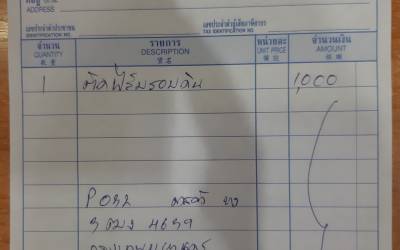 ที่อยู่
ADDRESS
เลขประจำตัวประชาชน
IDENTIFICATION NO.
เลขประจำตัวผู้เสียภาษีอากร
TAX IDENTIFICATION NO.
จำนวน รายการ หน่วยละ จำนวนเงิน
QUANTITY DESCRIPTION UNIT PRICE AMOUNT
1 ติดฟิล์มรอบคัน 1,000
3 4639
กรุงเทพมหานคร